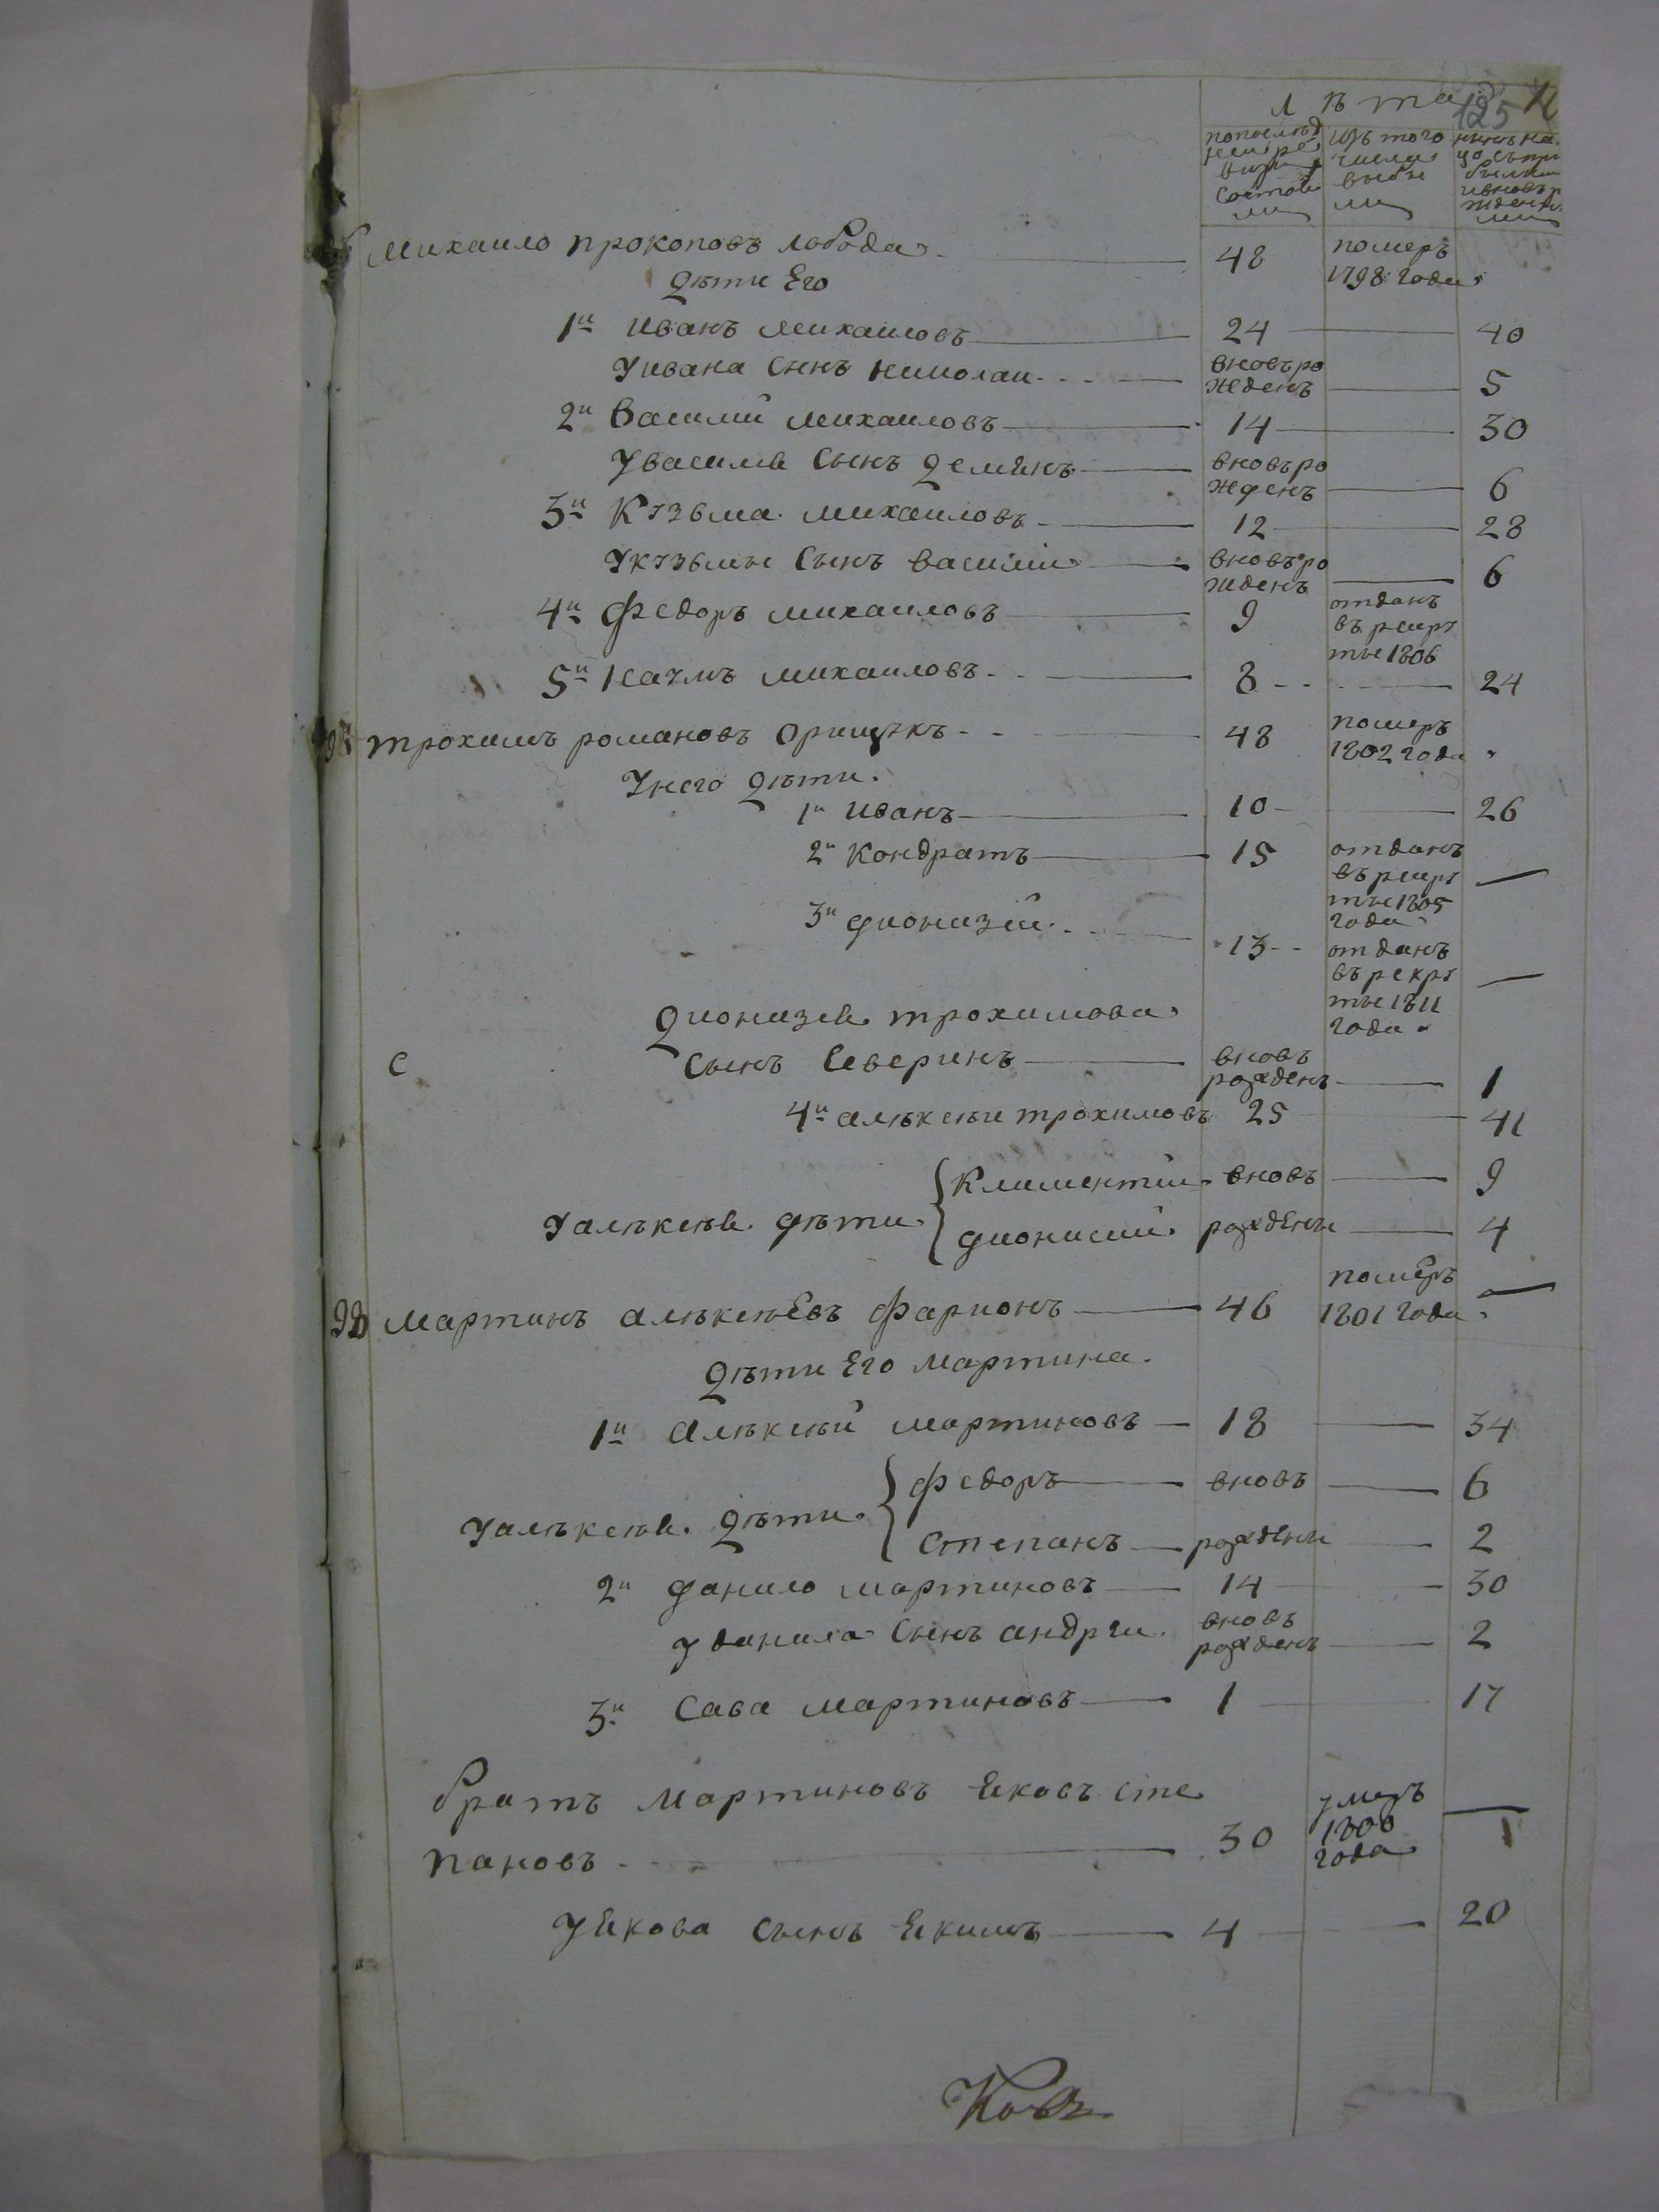 лѣта 125
попослѣд изъ того нынѣ на
ней ре числа
визіи выбы
состояли ли
Михаило прокоповъ лобода 48 померъ
дѣти Его 1798 года
1й Иванъ михаиловъ 24 40
Уивана Сынъ николаи вновь ро
жденъ 5
2й Василий михаиловъ 14 30
Увасиля Сынъ Демянъ вновь ро
жденъ 6
3й Кузьма михаиловъ 12 28
Укузьмы Сынъ василий вновь ро
жденъ 6
4й Федоръ михаиловъ 9 отданъ
въ рекру
ты 1806
5й Наумъ михаиловъ 8 24
97 трохимъ романовъ Орищукъ 48 померъ
1802 года
Унего Дѣти
1й Иванъ 10 26
2й Кондратъ 15 отданъ
въ рекру
ты 1805
года
3й дионизий 13 отданъ
въ рекру
ты 1811
года
Дионизея трохимова
Сынъ Северинъ вновь
рожденъ 1
С
4й алѣксѣи трохимовъ 25 41
Уалѣксѣя дѣти Климентии вновь 9
дионисий рождены 4
98 Мартинъ алѣксѣевъ Фарионъ 46 померъ
1801 года
Дѣти Его Мартина
1й Алѣксѣй мартиновъ 18 34
Уалѣксѣя Дѣти Федоръ вновь 6
Степанъ рождены 2
2й данило мартиновъ 14 30
У данила Сынъ андрѣи вновь
рожденъ 2
3й Сава мартиновъ 1 17
братъ Мартиновъ Яковъ Сте
пановъ 30 умеръ
1800
года
У Якова Сынъ Якимъ 4 20